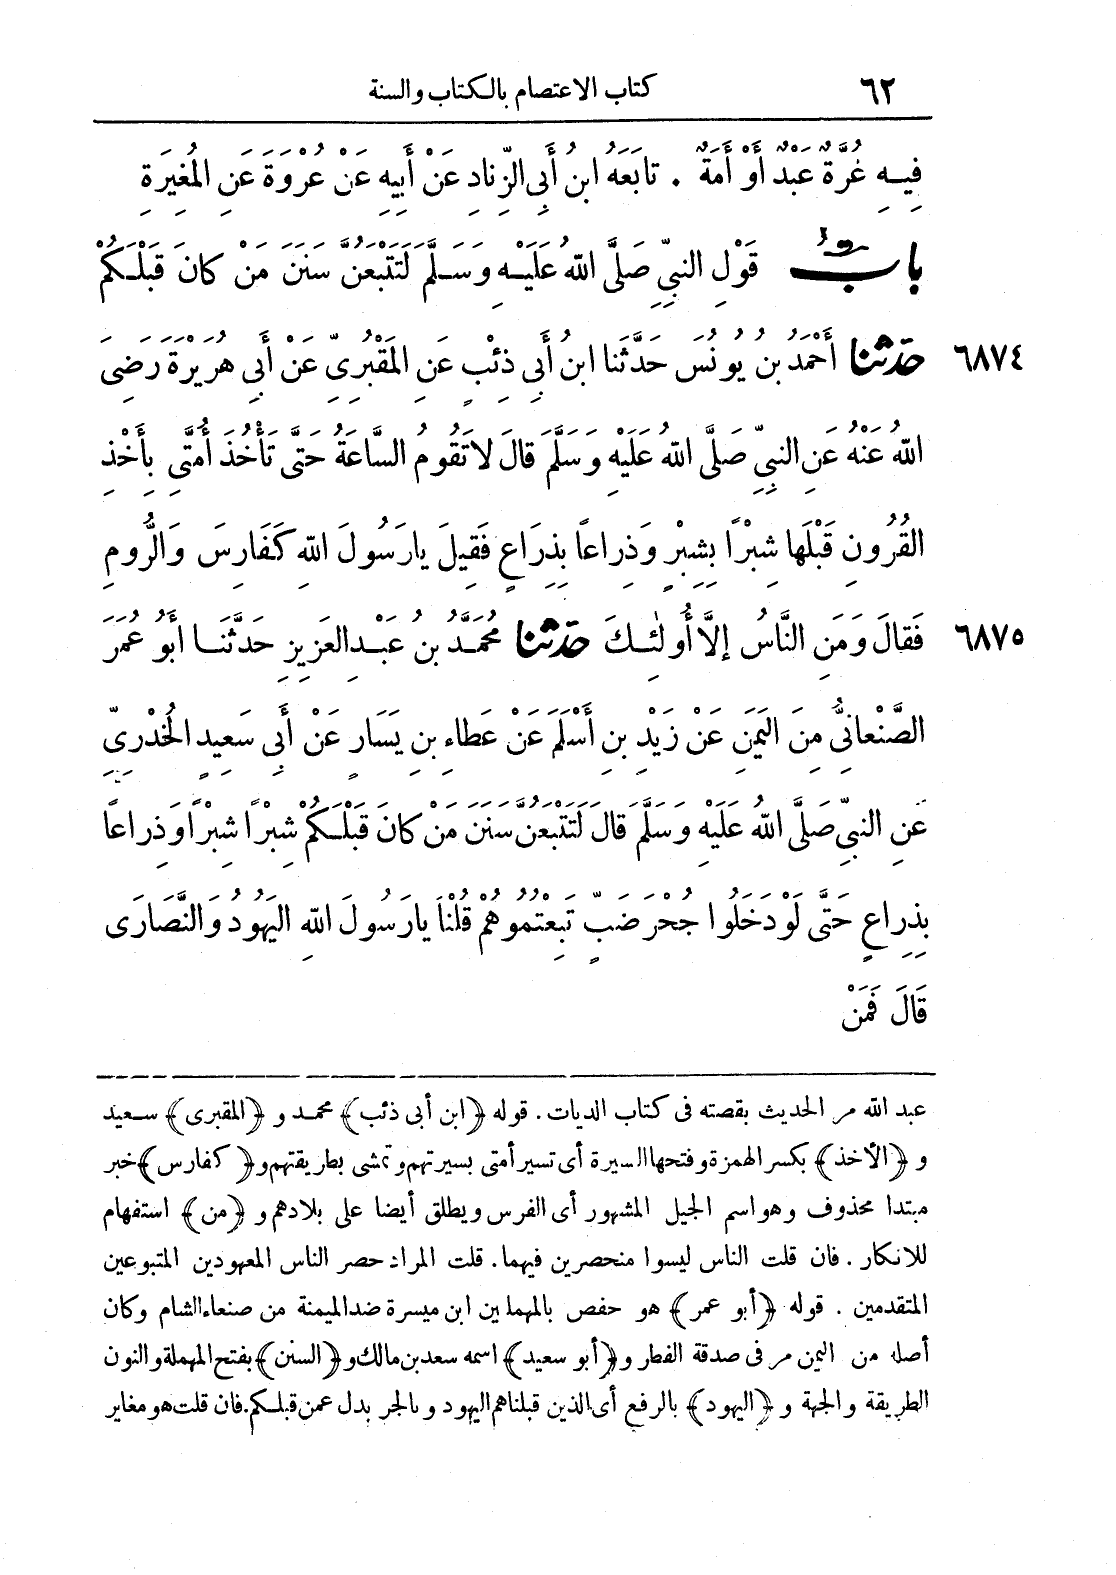 ٦٢ كتاب الاعتصام بالكتاب والسنة
فِيهِ غُرَّةٌ عَبْدٌ أَوْ أَمَةٌ . تابَعَهُ ابنُ أَبِى الزِّنادِ عَنْ أَبِيهِ عَنْ عُرْوَةَ عَنِ المُغِيرَةِ
بابُ قَوْلِ النبيِّ صَلَّى اللهُ عَلَيْهِ وَسَلَّمَ لَتَتْبَعُنَّ سَنَنَ مَنْ كانَ قَبْلَكُمْ
٦٨٧٤ حَدَّثَنَا أَحْمَدُ بنُ يُونُسَ حَدَّثَنا ابنُ أَبِى ذِئْبٍ عَنِ المَقْبُرِىِّ عَنْ أَبِى هُرَيْرَةَ رَضِىَ
اللهُ عَنْهُ عَنِ النبيِّ صَلَّى اللهُ عَلَيْهِ وَسَلَّمَ قالَ لا تَقُومُ السَّاعَةُ حَتَّى تَأْخُذَ أُمَّتِى بِأَخْذِ
القُرُونِ قَبْلَها شِبْرًا بِشِبْرٍ وَذِراعًا بِذِرَاعٍ فَقِيلَ يارَسُولَ اللهِ كَفَارِسَ وَالرُّومِ
٦٨٧٥ فَقالَ وَمَنِ النَّاسُ إلَّا أُولٰئِكَ حَدَّثَنَا مُحَمَّدُ بنُ عَبْدِ العَزِيزِ حَدَّثَنَا أَبُو عُمَرَ
الصَّنْعانِىُّ مِنَ اليَمَنِ عَنْ زَيْدِ بنِ أَسْلَمَ عَنْ عَطاءِ بنِ يَسَارٍ عَنْ أَبِى سَعِيدٍ الخُدْرِىِّ
عَنِ النبيِّ صَلَّى اللهُ عَلَيْهِ وَسَلَّمَ قالَ لَتَتْبَعُنَّ سَنَنَ مَنْ كانَ قَبْلَكُمْ شِبْرًا شِبْرًا وَذِراعًا
بِذِراعٍ حَتَّى لَوْ دَخَلُوا جُحْرَ ضَبٍّ تَبِعْتُمُوهُمْ قُلْنَا يارَسُولَ اللهِ اليَهُودُ وَالنَّصَارَى
قَالَ فَمَنْ
عبد الله مر الحديث بقصته فى كتاب الديات. قوله ﴿ابن أبى ذئب﴾ محمد و ﴿المقبرى﴾ سعيد
و ﴿الأخذ﴾ بكسر الهمزة وفتحها السيرة أى تسير أمتى بسيرتهم وتمشى بطريقتهم و ﴿كفارس﴾ خبر
مبتدا محذوف وهو اسم الجيل المشهور أى الفرس ويطلق أيضا على بلادهم و ﴿من﴾ استفهام
للانكار . فان قلت الناس ليسوا منحصرين فيهما. قلت المراد حصر الناس المعهودين المتبوعين
المتقدمين . قوله ﴿أبو عمر﴾ هو حفص بالمهملين ابن ميسرة ضد الميمنة من صنعاء الشام وكان
أصله من اليمن مر فى صدقة الفطر و ﴿أبو سعيد﴾ اسمه سعد بن مالك و ﴿السنن﴾ بفتح المهملة والنون
الطريقة والجهة و ﴿اليهود﴾ بالرفع أى الذين قبلنا هم اليهود وبالجر بدل عمن قبلكم. فان قلت هو مغاير